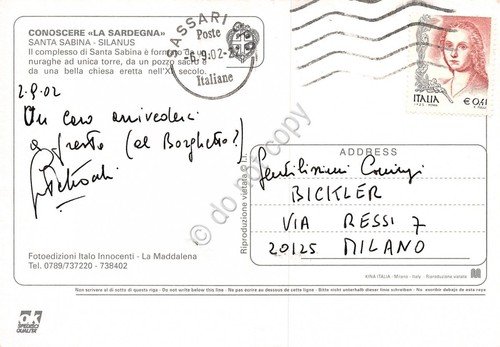 CONOSCERE «LA SARDEGNA»
SANTA SABINA - SILANUS
Il complesso di Santa Sabina è formato da un
nuraghe ad unica torre, da un pozzo sacro e
da una bella chiesa eretta nell'XI secolo.
SASSARI
Poste
-6.9.02-
Italiane
ITALIA
€ 0,41
2.9.02
Un caro arrivederci
a presto (al Borghetto?)
Riproduzione vietata
ADDRESS
Gentilissimi Coniugi
BICKLER
VIA RESSI 7
20125 MILANO
© do not copy
Fotoedizioni Italo Innocenti - La Maddalena
Tel. 0789/737220 - 738402
KINA ITALIA - Milano - Italy - Riproduzione vietata
Non scrivere al di sotto di questa riga - Do not write below this line - Ne pas écrire au dessous de cette ligne - Bitte nicht unterhalb dieser linie schreiben - No escribir debajo de esta raya
OK
SPEDISCI
QUALITA'